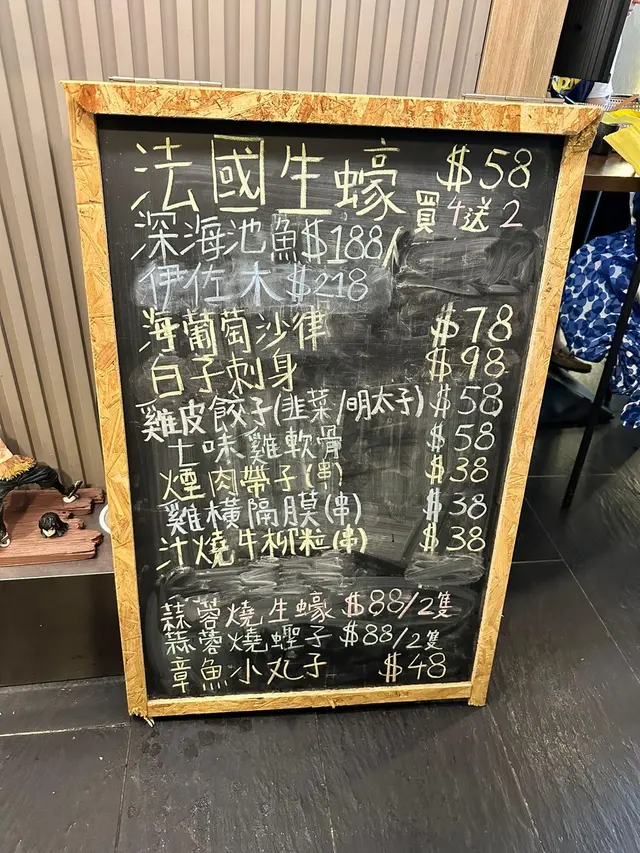 法國生蠔 $58
買4送2
深海池魚$188/
伊佐木 $218
海葡萄沙律 $78
白子刺身 $98
雞皮餃子(韭菜/明太子) $58
七味雞軟骨 $58
煙肉帶子(串) $38
雞橫隔膜(串) $38
汁燒牛柳粒(串) $38
蒜蓉燒生蠔 $88/2隻
蒜蓉燒蟶子 $88/2隻
章魚小丸子 $48